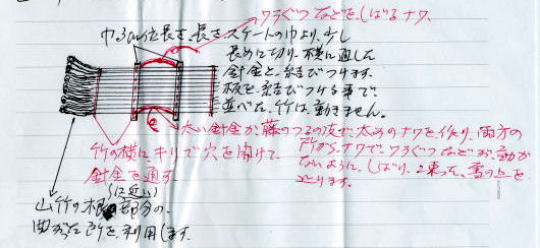 ワラぐつなどをしばるナワ、
巾、3cm位長さ、長さスケートの巾より、少し
長めに切り、横に通した
針金と、結びつけます。
板を、結びつける事で、
並べた、竹は、動きません。
太い針金か、藤のつるの皮で、太めのナワを作り、両方の
所から、ナワで、ワラぐつなどが、動か
ないように、しばり、2乗って、雪の上を
とります。
竹の横に、キリで穴を開けて、
針金を通す。
山竹の根(に近い)部分の、
曲がった所を、利用します。